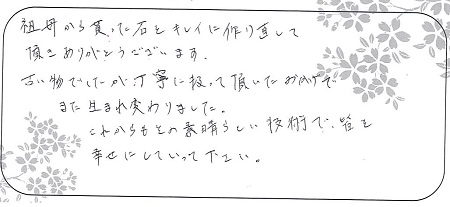 祖母から貰った石をキレイに作り直して
頂きありがとうございます。
古い物でしたが、丁寧に扱って頂いたおかげで
また生まれ変わりました。
これからもその素晴らしい技術で、皆を
幸せにしていって下さい。